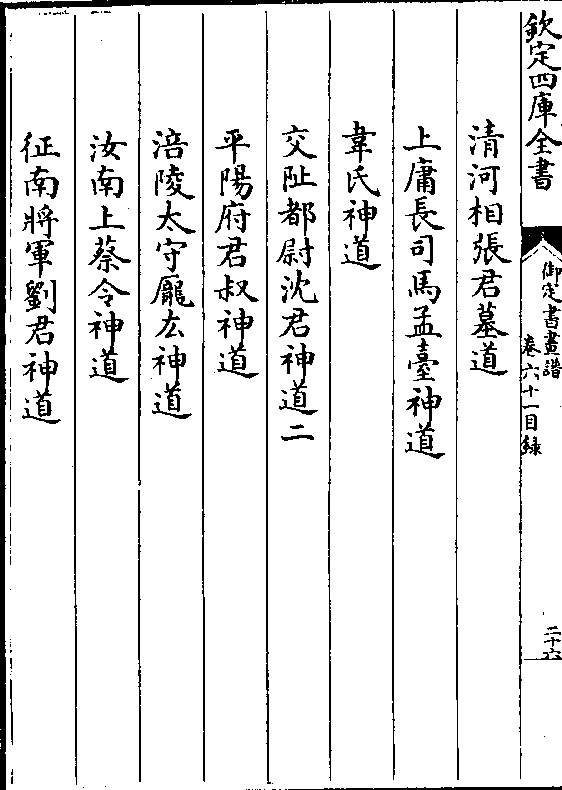 欽定四庫全書
御定書畫譜
卷六十一目録
二十六
清河相張君墓道
上庸長司馬孟臺神道
韋氏神道
交阯都尉沈君神道二
平陽府君叔神道
涪陵太守龎厷神道
汝南上蔡令神道
征南將軍劉君神道